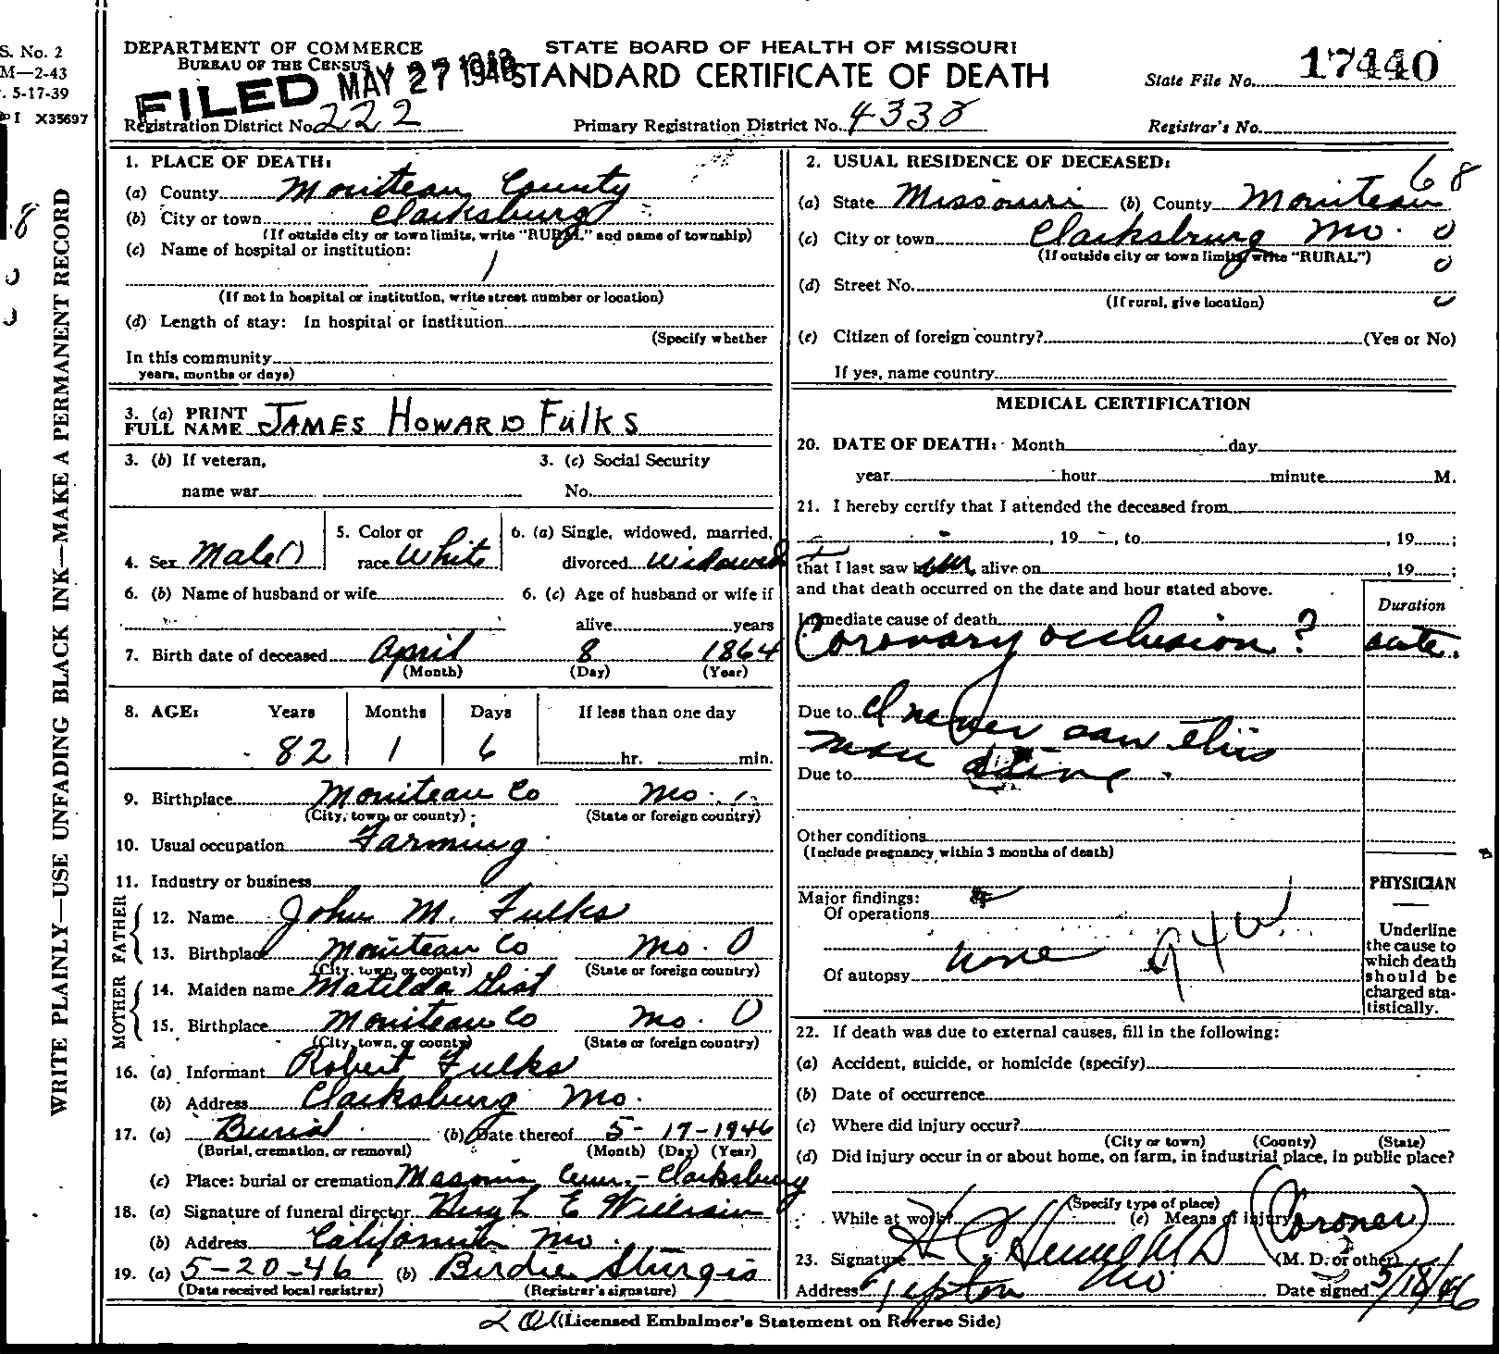 S. No. 2
M—2-43
. 5-17-39
I X35697
8
WRITE PLAINLY—USE UNFADING BLACK INK—MAKE A PERMANENT RECORD
DEPARTMENT OF COMMERCE
BUREAU OF THE CENSUS
STATE BOARD OF HEALTH OF MISSOURI
STANDARD CERTIFICATE OF DEATH
FILED MAY 27 1946
State File No. 17440
Registration District No. 222
Primary Registration District No. 4338
Registrar's No.
1. PLACE OF DEATH:
(a) County Moniteau County
(b) City or town Clarksburg
(If outside city or town limits, write "RURAL" and name of township)
(c) Name of hospital or institution:
1
(If not in hospital or institution, write street number or location)
(d) Length of stay: In hospital or institution
(Specify whether
In this community
years, months or days)
2. USUAL RESIDENCE OF DECEASED:
68
(a) State Missouri (b) County Moniteau
(c) City or town Clarksburg Mo. 0
(If outside city or town limits write "RURAL")
0
(d) Street No.
(If rural, give location)
(e) Citizen of foreign country? (Yes or No)
If yes, name country
3. (a) PRINT
FULL NAME JAMES HOWARD FulkS
3. (b) If veteran,
name war
3. (c) Social Security
No.
4. Sex Male
5. Color or
race White
6. (a) Single, widowed, married,
divorced Widowed
6. (b) Name of husband or wife
6. (c) Age of husband or wife if
alive years
7. Birth date of deceased April 8 1864
(Month) (Day) (Year)
8. AGE: Years Months Days If less than one day
82 1 6 hr. min.
9. Birthplace Moniteau Co Mo.
(City, town, or county) (State or foreign country)
10. Usual occupation Farming
11. Industry or business
FATHER
12. Name John M. Fulks
13. Birthplace Moniteau Co Mo. 0
(City, town, or county) (State or foreign country)
MOTHER
14. Maiden name Matilda List
15. Birthplace Moniteau Co Mo. 0
(City, town, or county) (State or foreign country)
16. (a) Informant Robert Fulks
(b) Address Clarksburg Mo.
17. (a) Burial (b) Date thereof 5-17-1946
(Burial, cremation, or removal) (Month) (Day) (Year)
(c) Place: burial or cremation Masonic Cem.-Clarksburg
18. (a) Signature of funeral director Hugh E Williams
(b) Address California Mo.
19. (a) 5-20-46 (b) Birdie Sturgis
(Date received local registrar) (Registrar's signature)
MEDICAL CERTIFICATION
20. DATE OF DEATH: Month day
year hour minute M.
21. I hereby certify that I attended the deceased from
, 19 , to , 19 ;
that I last saw him alive on , 19 ;
and that death occurred on the date and hour stated above.
Duration
Immediate cause of death
Coronary occlusion? acute.
Due to I never saw this
man
Due to
Other conditions
(Include pregnancy within 3 months of death)
PHYSICIAN
Underline
the cause to
which death
should be
charged sta-
tistically.
Major findings:
Of operations
94W
Of autopsy none
22. If death was due to external causes, fill in the following:
(a) Accident, suicide, or homicide (specify)
(b) Date of occurrence
(c) Where did injury occur?
(City or town) (County) (State)
(d) Did injury occur in or about home, on farm, in industrial place, in public place?
(Specify type of place)
While at work? (e) Means of injury
(Coroner)
23. Signature MD (M. D. or other)
Address Tipton Mo Date signed 5/18/46
(Licensed Embalmer's Statement on Reverse Side)